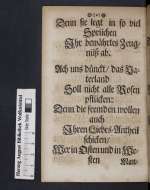 Denn sie legt in so viel
Sprüchen
Ihr bewährtes Zeug-
nüß ab.
Ach uns dünckt/ das Va-
terland
Soll nicht alle Rosen
pflücken:
Denn die fremden wollen
auch
Ihren Liebes-Antheil
schicken/
Wer in Osten und in We-
sten
Herzog August Bibliothek Wolfenbüttel